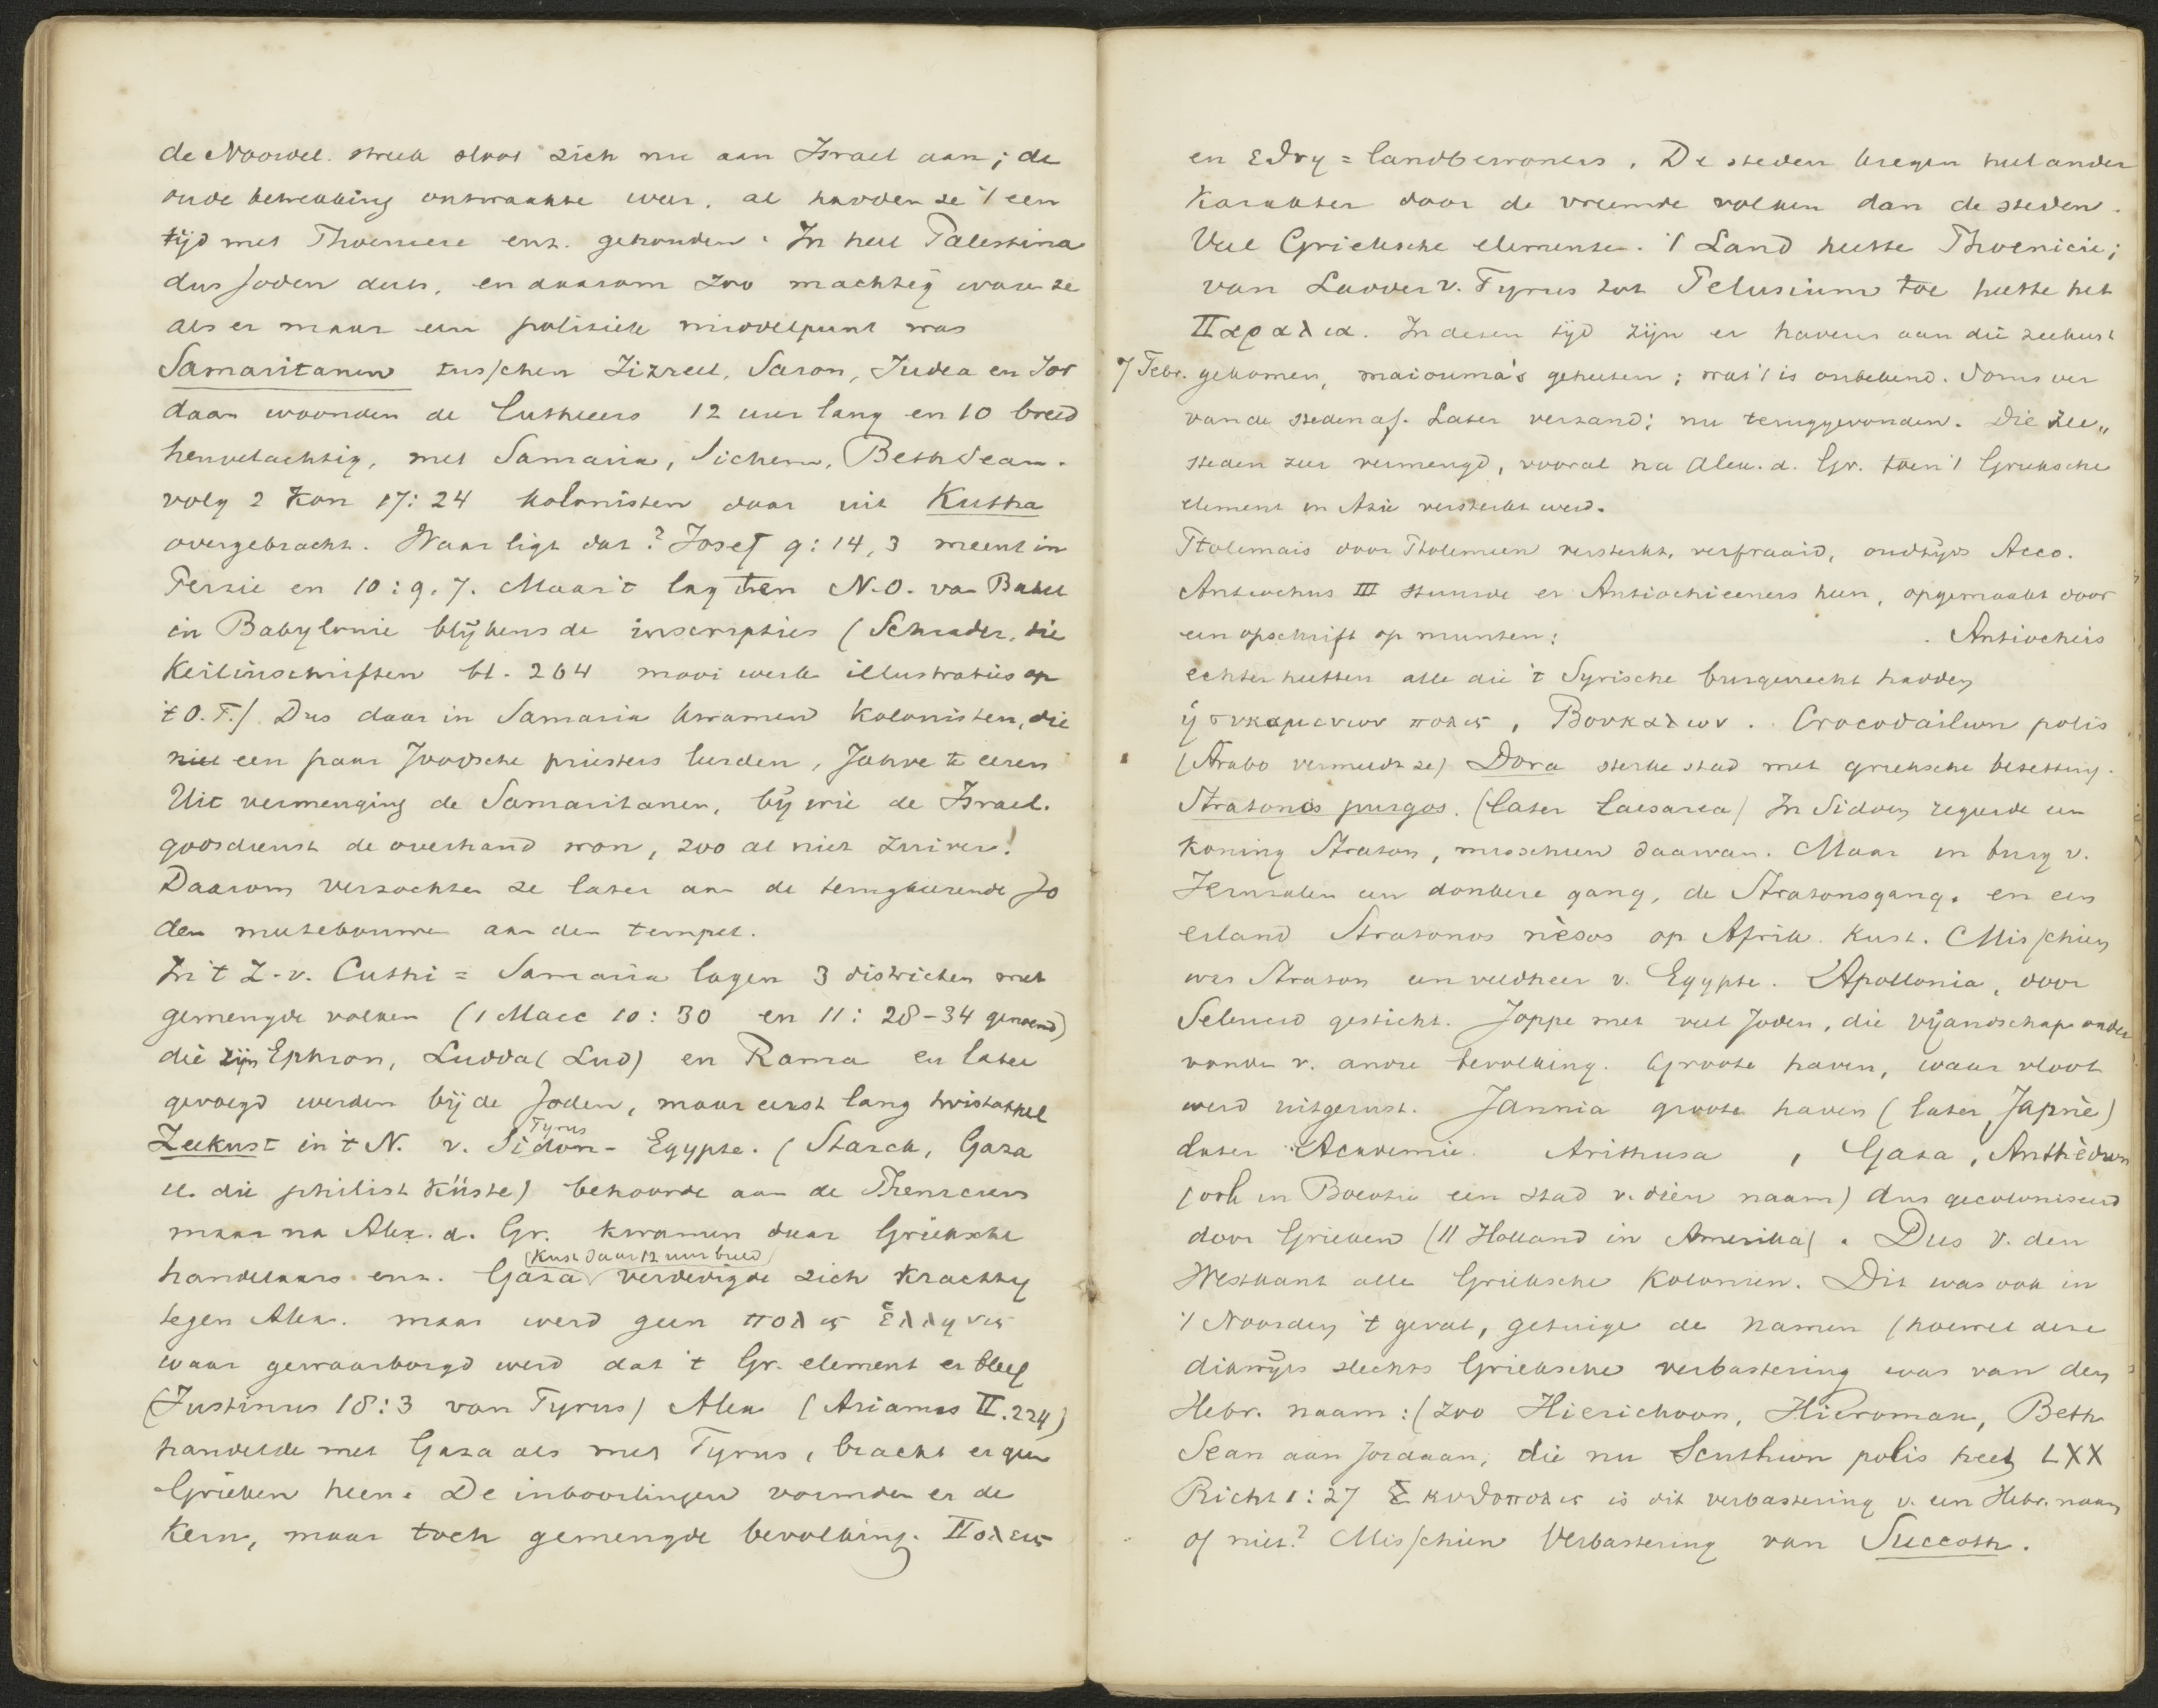 de Noordel. streek sloot zich nu aan Israel aan; de
oude betrekking ontwaakte weer, al hadden ze 't een
tijd met Phoenicie enz. gehouden. In heel Palestina
dus Joden dus, en daarom zoo machtig waren ze
als er maar een politiek middelpunt was
Samaritanen tusschen Jizreel, Saron, Judea en Jor
daan woonden de Cutheers 12 uur lang en 10 breed
heuvelachtig, met Samaria, Sichem, Beth Sean.
volg 2 Kon 17:24 kolonisten daar uit Kutha
overgebracht. Waar ligt dat? Josef 9:14,3 meent in
Perzie en 10:9.7. Maar 't lag ten N.O. van Babel
in Babylonie blijkens de inscripties (Schrader, die
Keilinschriften bl. 264 mooi werk illustraties op
't O.T.) Dus daar in Samaria kwamen kolonisten, die
niet een paar Joodsche priesters leerden, Jahve te eeren
Uit vermenging de Samaritanen, bij wie de Israel.
godsdienst de overhand won, zoo al niet zuiver!
Daarom verzochten ze later aan de terugkeerende Jo
den meetebouwen aan den tempel.
In 't Z. v. Cuthi = Samaria lagen 3 districten met
gemengde volken (1 Macc 10:30 en 11:28-34 genoemd)
die zijn Ephron, Ludda (Lud) en Rama en later
gevoegd werden bij de Joden, maar eerst lang twistappel
Zeekust in 't N. v. Tyrus Sidon - Egypte. (Starck, Gaza
u. die philist Küste) behoorde aan de Phenicers
maar na Alex. d. Gr. kwamen daar Grieksche
handelaars enz. Gaza (Kust daar 12 uur breed) verdedigde zich krachtig
tegen Alex. maar werd geen πολις ἑλληνις
waar gewaarborgd werd dat 't Gr. element er bleef
(Justinus 18:3 van Tyrus) Alex (Arianus II.224)
handelde met Gaza als met Tyrus, bracht er geen
Grieken heen. De inboorlingen vormden er de
kern, maar toch gemengde bevolking. Πολεις
en εθνη = landbewoners. De steden kregen heel ander
karakter door de vreemde volken dan de steden.
Veel Grieksche elementen. 't Land heette Phoenicie;
van Ladder v. Tyrus tot Pelusium toe heette het
Παραλια. In dezen tijd zijn er havens aan die zeekust
7 Febr. gekomen, maiouma's geheeten; wat 't is onbekend. Soms ver
van de steden af. Later verzand; nu teruggevonden. Die zee„
steden zeer vermengd, vooral na Alex. d. Gr. toen 't Grieksche
element in Azie versterkt werd.
Ptolemais door Ptolemeen versterkt, verfraaid, oudtijds Acco.
Antiochus III stuurde er Antiochiceners heen, opgemaakt door
een opschrift op munten: Antiocheis
echter heetten alle die 't Syrische burgerrecht hadden
ἡ συκαμενων πολις, Βουκαλων. Crocodailwn polis
(Strabo vermeldt ze) Dora sterke stad met grieksche bezetting.
Stratonos purgos. (later Caesarea) In Sidon regeerde een
koning Straton, misschien daarvan. Maar in burg v.
Jeruzalem een donkere gang, de Stratonsgang. en een
eiland Stratonos nèsos op Afrik. kust. Misschien
was Straton een veldheer v. Egypte. Apollonia, door
Seleucid gesticht. Joppe met veel Joden, die vijandschap onder
vonden v. andre bevolking. Groote haven, waar vloot
werd uitgerust. Jamnia groote haven (later Japnè)
later Academie. Arithusa, Gaza, Anthèdwn
(ook in Boeotie een stad v. dien naam) dus gecoloniseerd
door Grieken (|| Holland in Amerika). Dus v. den
Westkant alle Grieksche kolonien. Dit was ook in
't Noorden 't geval, getuige de namen (hoewel deze
dikwijls slechts Grieksche verbastering was van den
Hebr. naam: (zoo Hierichoon, Hieromax, Beth
Sean aan Jordaan, die nu Scuthwn polis heet LXX
Richt 1:27 Σκυθοπολις is dit verbastering v. een Hebr. naam
of niet? Misschien Verbastering van Succoth.